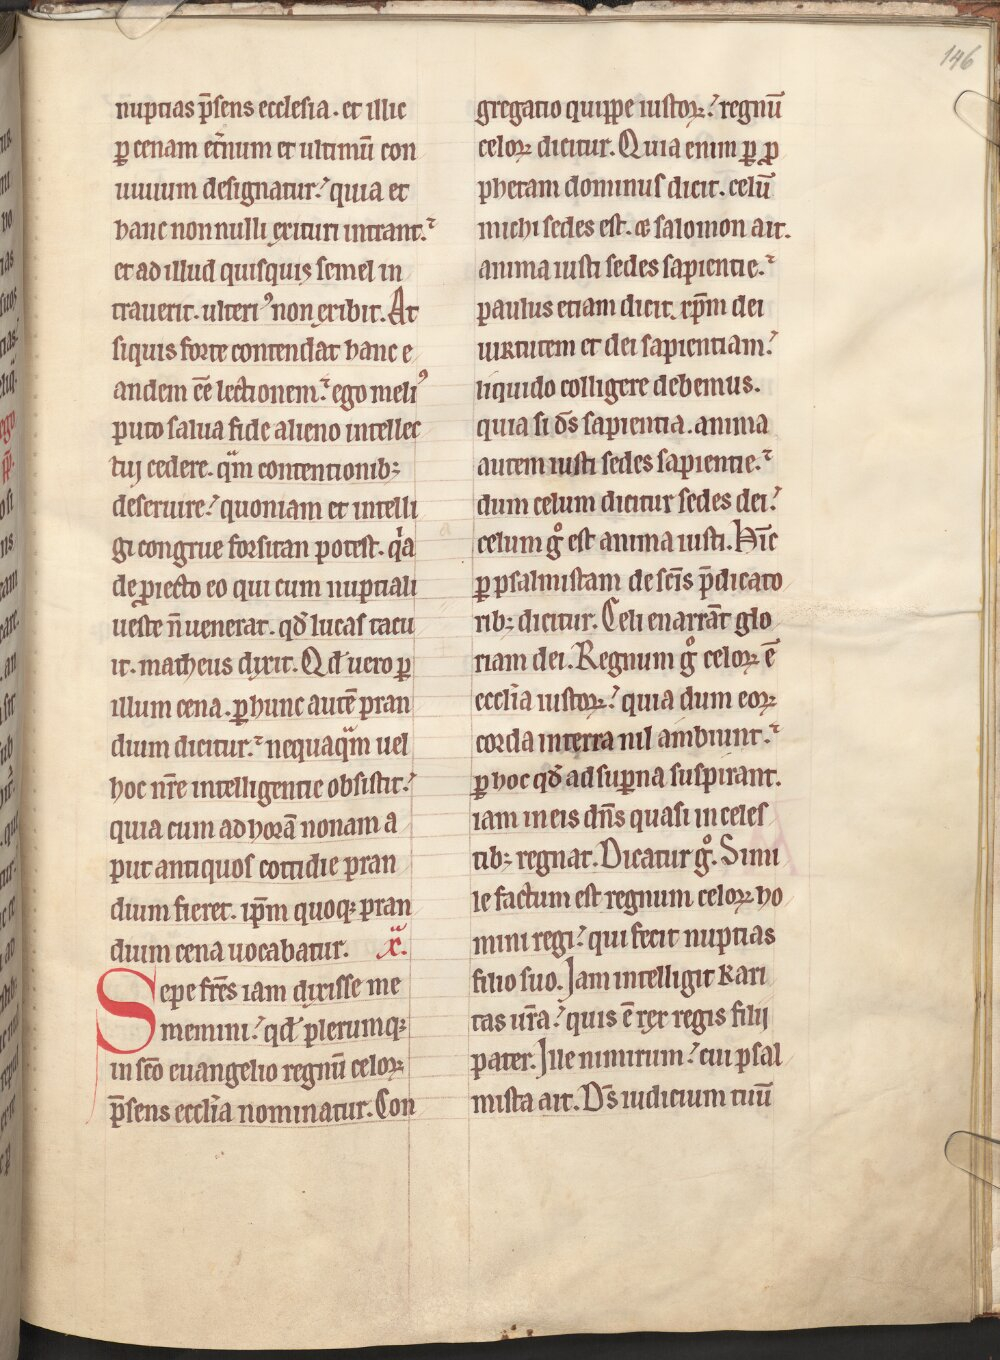 146
nuptias p̄sens ecclesia. et illic
ꝑ cenam et̄num et ultimū con
uiuium designatur? quia et
hanc nonnulli exituri intrant.
et ad illud quisquis semel in
trauerit. ulteriꝰ non exibit. At
siquis forte contendat hanc e
andem ēē lectionem. ego meliꝰ
puto salua fide alieno intellec
tuj cedere. qᵃm contentionib;
deseruire? quoniam et intelli
gi congrue forsitan potest. qⁱa
de ꝓiecto eo qui cum nuptiali
ueste n̄ uenerat. qđ lucas tacu
it. matheus dixit. Qđ uero ꝑ
illum cena. ꝑ hunc autē pran
dium dicitur. nequaqᵃm uel
hoc nr̄e intelligentie obsistit?
quia cum ad horā nonam a
put antiquos cottidie pran
dium fieret. ip̄m quoq; pran
dium cena uocabatur. xͣ.
Sepe fr̄es iam dixisse me
memini? qđ plerumq;
in sc̄o euangelio regnū celoꝝ
p̄sens eccl̄ia nominatur. Con
gregatio quippe iustoꝝ? regnū
celoꝝ dicitur. Quia enim ꝑ ꝓ
phetam dominus dicit. celū
michi sedes est. & salomon ait.
anima iusti sedes sapientie.
paulus etiam dicit. xp̄m dei
uirtutem et dei sapientiam?
liquido colligere debemus.
quia si d̄s sapientia. anima
autem iusti sedes sapientie.
dum celum dicitur sedes dei?
celum gͦ est anima iusti. Hīc
ꝑ psalmistam de sc̄is p̄dicato
rib; dicitur. Celi enarrāt glo
riam dei. Regnum gͦ celoꝝ ē
eccl̄ia iustoꝝ? quia dum eoꝝ
corda interra nil ambiunt.
ꝑ hoc qđ ad suꝑna suspirant.
iam in eis dn̄s quasi in celes
tib; regnat. Dicatur gͦ. Simi
le factum est regnum celoꝝ ho
mini regi? qui fecit nuptias
filio suo. Jam intelligit kari
tas ur̄a? quis ē rex regis filij
pater. Jlle nimirum? cui psal
mista ait. D̄s iudicium tuū